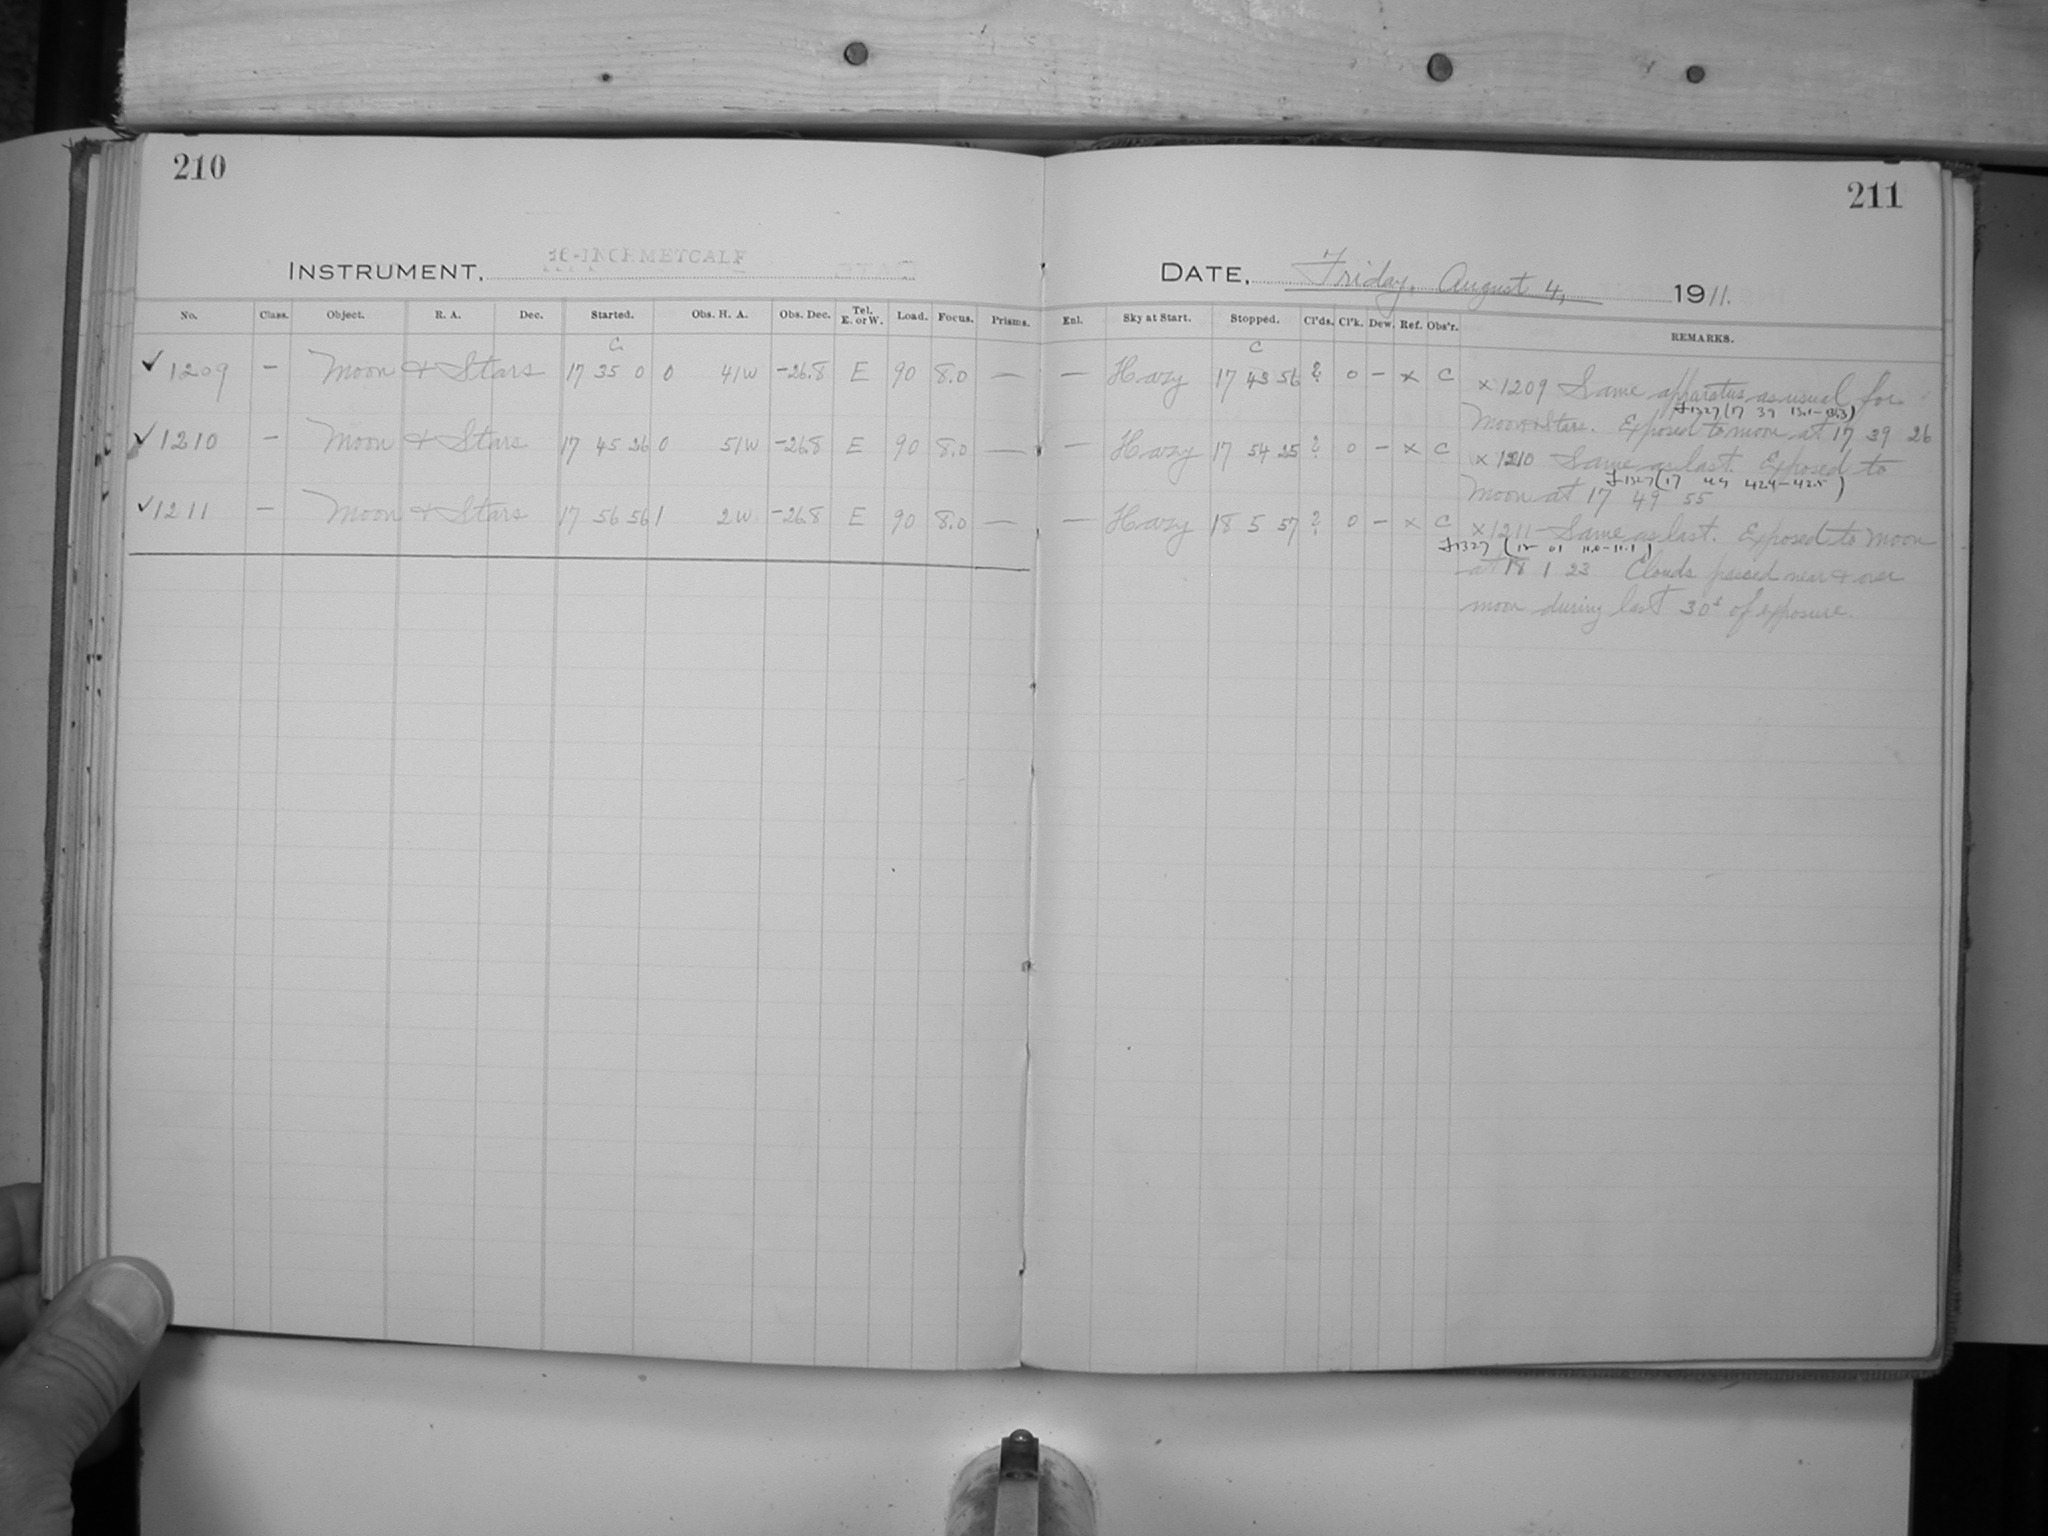 210
INSTRUMENT, 16-INCH METCALF
No. Class. Object. R. A. Dec. Started. Obs. H. A. Obs. Dec. Tel. E. or W. Load. Focus. Prisms.
C
✓ 1209 — Moon & Stars 17 35 0 0 41W -26.8 E 90 8.0 —
✓ 1210 — Moon & Stars 17 45 26 0 51W -26.8 E 90 8.0 —
✓ 1211 — Moon & Stars 17 56 56 1 2W -26.8 E 90 8.0 —
211
DATE, Friday, August 4, 1911.
Enl. Sky at Start. Stopped. Cl'ds. Cl'k. Dew. Ref. Obs'r. REMARKS.
C
— Hazy 17 43 56 ? 0 — x C
— Hazy 17 54 25 ? 0 — x C
— Hazy 18 5 57 ? 0 — x C
x 1209 Same apparatus as usual for
(17 39 13.1-13.3)
Moon & Stars. Exposed to moon at 17 39 26
x 1210 Same as last. Exposed to
(17 49 42.4-42.5)
Moon at 17 49 55
x 1211 Same as last. Exposed to Moon
(18 01 11.0-11.1)
at 18 1 23 Clouds passed near & over
moon during last 30s of exposure.